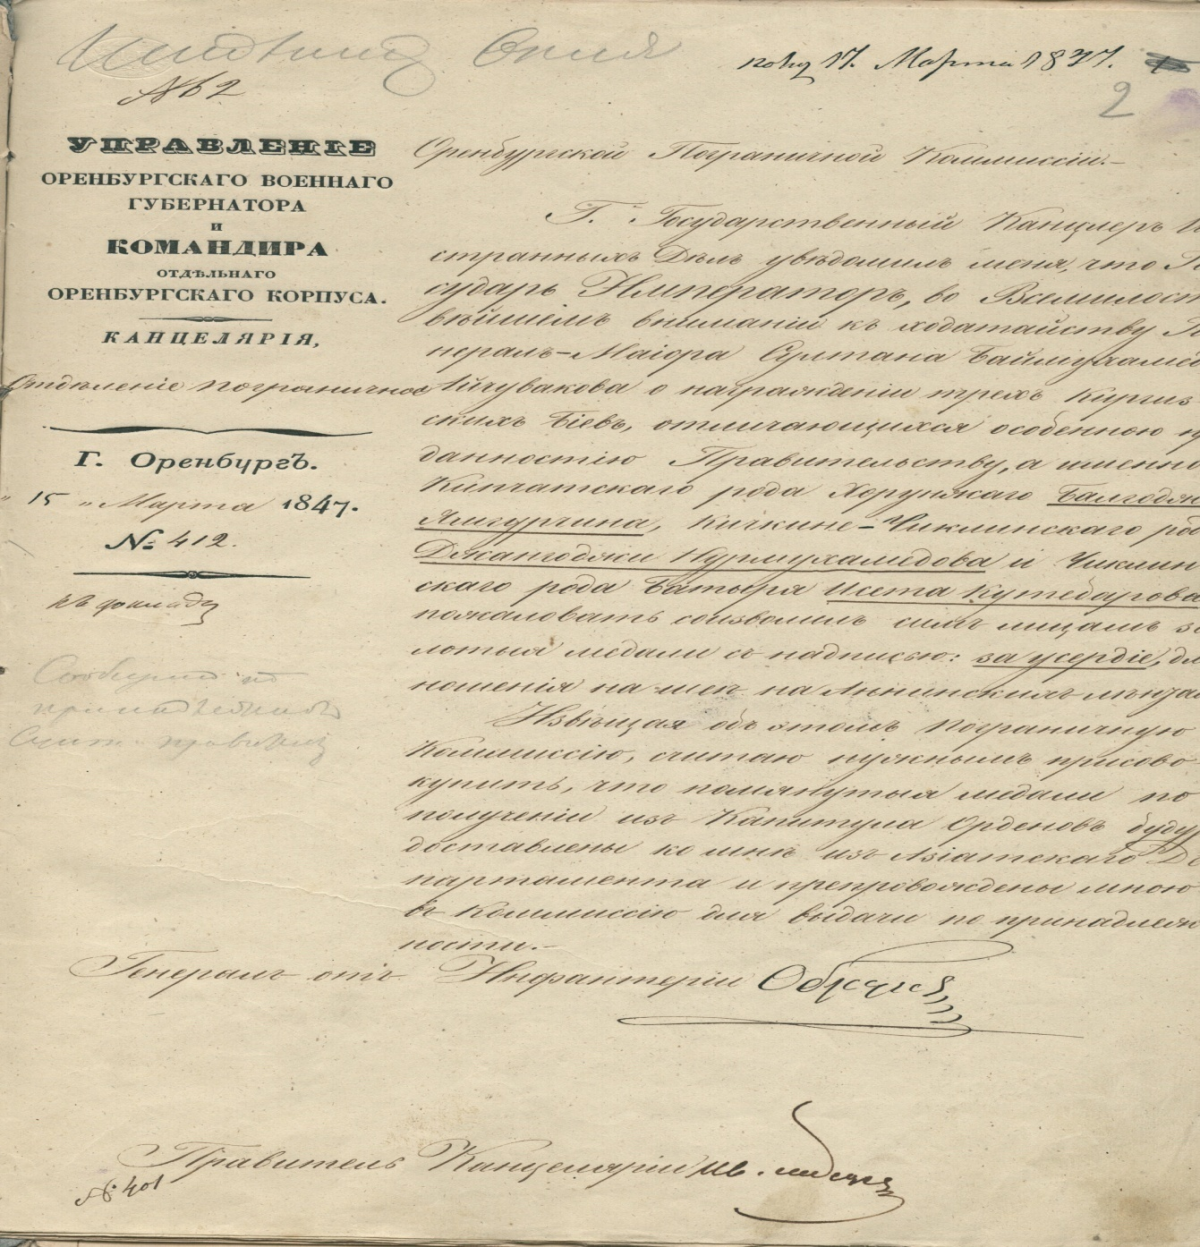 пол. 17. Марта 1847.
№ 2
2
УПРАВЛЕНІЕ
ОРЕНБУРГСКАГО ВОЕННАГО
ГУБЕРНАТОРА
И
КОМАНДИРА
ОТДѢЛЬНАГО
ОРЕНБУРГСКАГО КОРПУСА.
КАНЦЕЛЯРІЯ,
Отдѣленіе пограничное
Г. Оренбургъ.
"15" Марта 1847.
№ 412.
къ докладу
Оренбургской Пограничной Коммиссіи.
Г. Государственный Канцлеръ
странныхъ Дѣлъ увѣдомилъ меня, что
сударь Императоръ, во Всемилост
вѣйшемъ вниманіи къ ходатайству
нералъ-Маіора Султана Баймухамед
Айчувакова о награжденіи трехъ Киргиз
скихъ Біевъ, отличающихся особенною п
данностію Правительству, а именно
Кипчатскаго рода Хорунжаго Балгодж
Ямгурчина, Кичкине-Чиклинскаго ро
Джангоджи Нурмухамедова и Чиклин
скаго рода Батыря Исета Кутебарова
пожаловать соизволилъ симъ лицамъ зо
лотыя медали съ надписью: за усердіе, дл
ношенія на шеѣ на Аннинскихъ лентах
Извѣщая объ этомъ Пограничную
Коммиссію, считаю нужнымъ присово
купить, что помянутыя медали по
полученіи изъ Капитула Орденовъ буду
доставлены ко мнѣ изъ Азіатскаго Де
партамента и препровождены мною
въ Коммиссію для выдачи по принадлеж
ности.-
Генералъ отъ Инфантеріи Обручев
Правитель Канцеляріи
№ 401